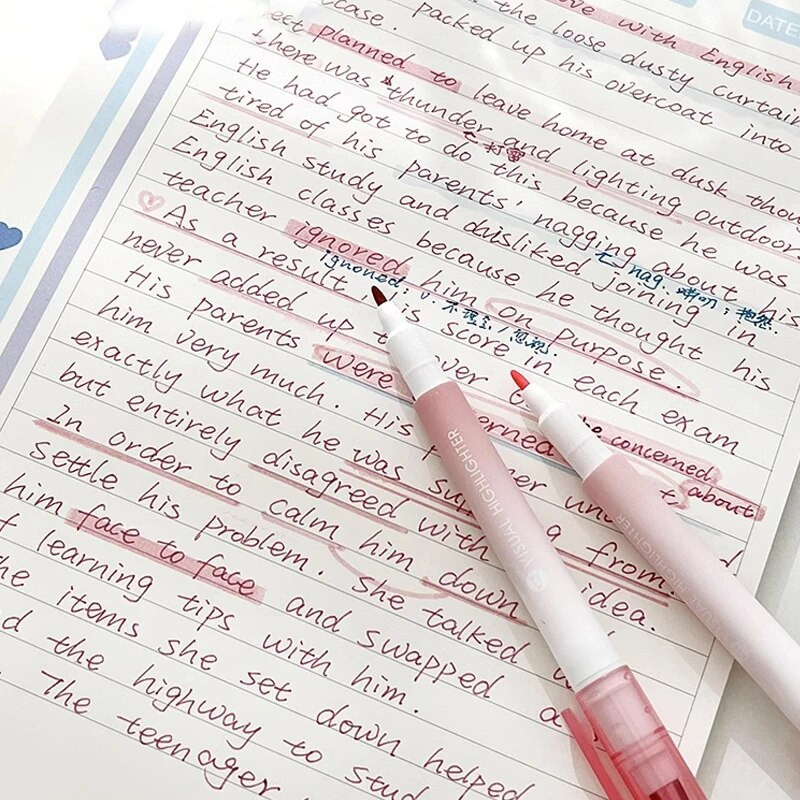 love with English
DATE
case. packed up the loose dusty curtain
his overcoat into
planned to leave home at dusk thoug
there was thunder and lighting outdoors
打雷
He had got to do this because he was
tired of his parents' nagging about his
nag. 唠叨；抱怨.
English study and disliked joining in
English classes because he thought his
teacher ignored him on purpose.
ignored. v. 不理会/忽视.
As a result, his score in each exam
never added up over
His parents were concerned
be concerned about
him very much. His
exactly what he was a from.
but entirely disagreed with idea.
In order to calm him down
settle his problem. She talked
him face to face and swapped
learning tips with him.
the items she set down helped
the highway to stud
The teenager
VISUAL HIGHLIGHTER
VISUAL HIGHLIGHTER